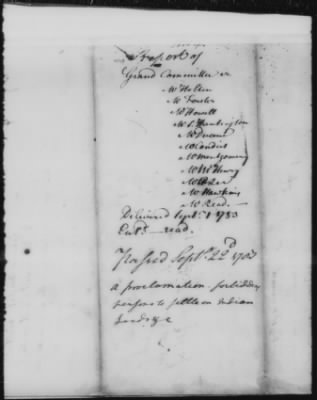 Report of
Grand Committee
Mr Holten
Mr
Mr Howell
Mr S. Huntington
Mr Duane
Mr Condict
Mr Montgomery
Mr McHenry
Mr
Mr Hawkins
Mr Read —
Delivered Sept. 1 1783
Entd — read.
Passed Septr. 22d 1783
a proclamation forbidding
persons to settle on Indian
Lands &c